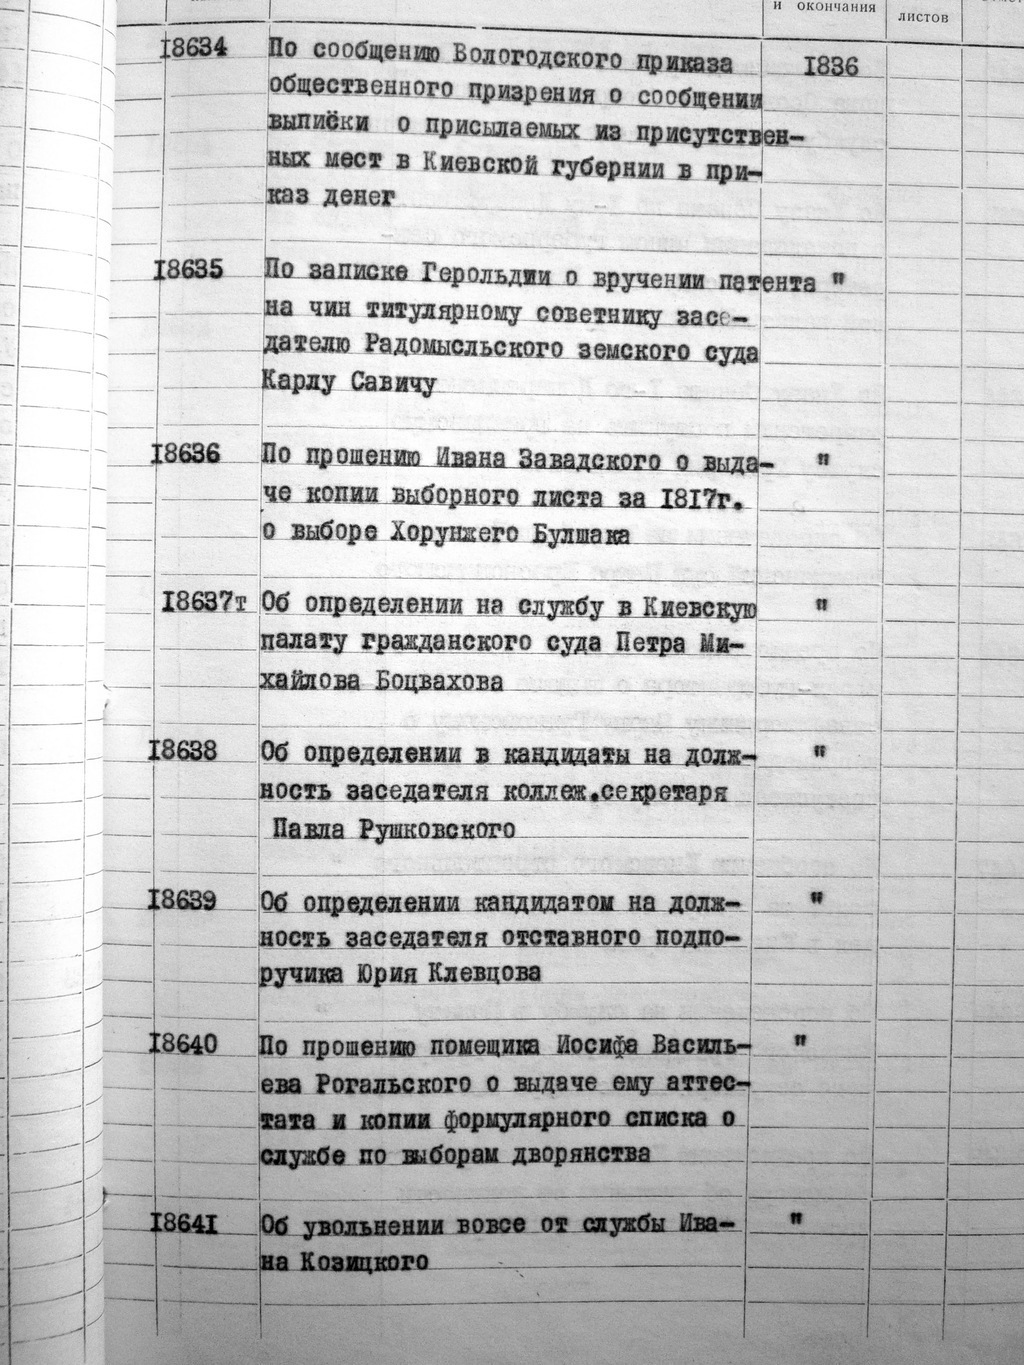 и окончания
листов
18634 По сообщению Вологодского приказа 1836
общественного призрения о сообщении
выписки о присылаемых из присутствен-
ных мест в Киевской губернии в при-
каз денег
18635 По записке Герольдии о вручении патента "
на чин титулярному советнику засе-
дателю Радомысльского земского суда
Карлу Савичу
18636 По прошению Ивана Завадского о выда- "
че копии выборного листа за 1817г.
о выборе Хорунжего Булшака
18637т Об определении на службу в Киевскую "
палату гражданского суда Петра Ми-
хайлова Боцвахова
18638 Об определении в кандидаты на долж- "
ность заседателя коллеж.секретаря
Павла Рушковского
18639 Об определении кандидатом на долж- "
ность заседателя отставного подпо-
ручика Юрия Клевцова
18640 По прошению помещика Иосифа Василь- "
ева Рогальского о выдаче ему аттес-
тата и копии формулярного списка о
службе по выборам дворянства
18641 Об увольнении вовсе от службы Ива- "
на Козицкого